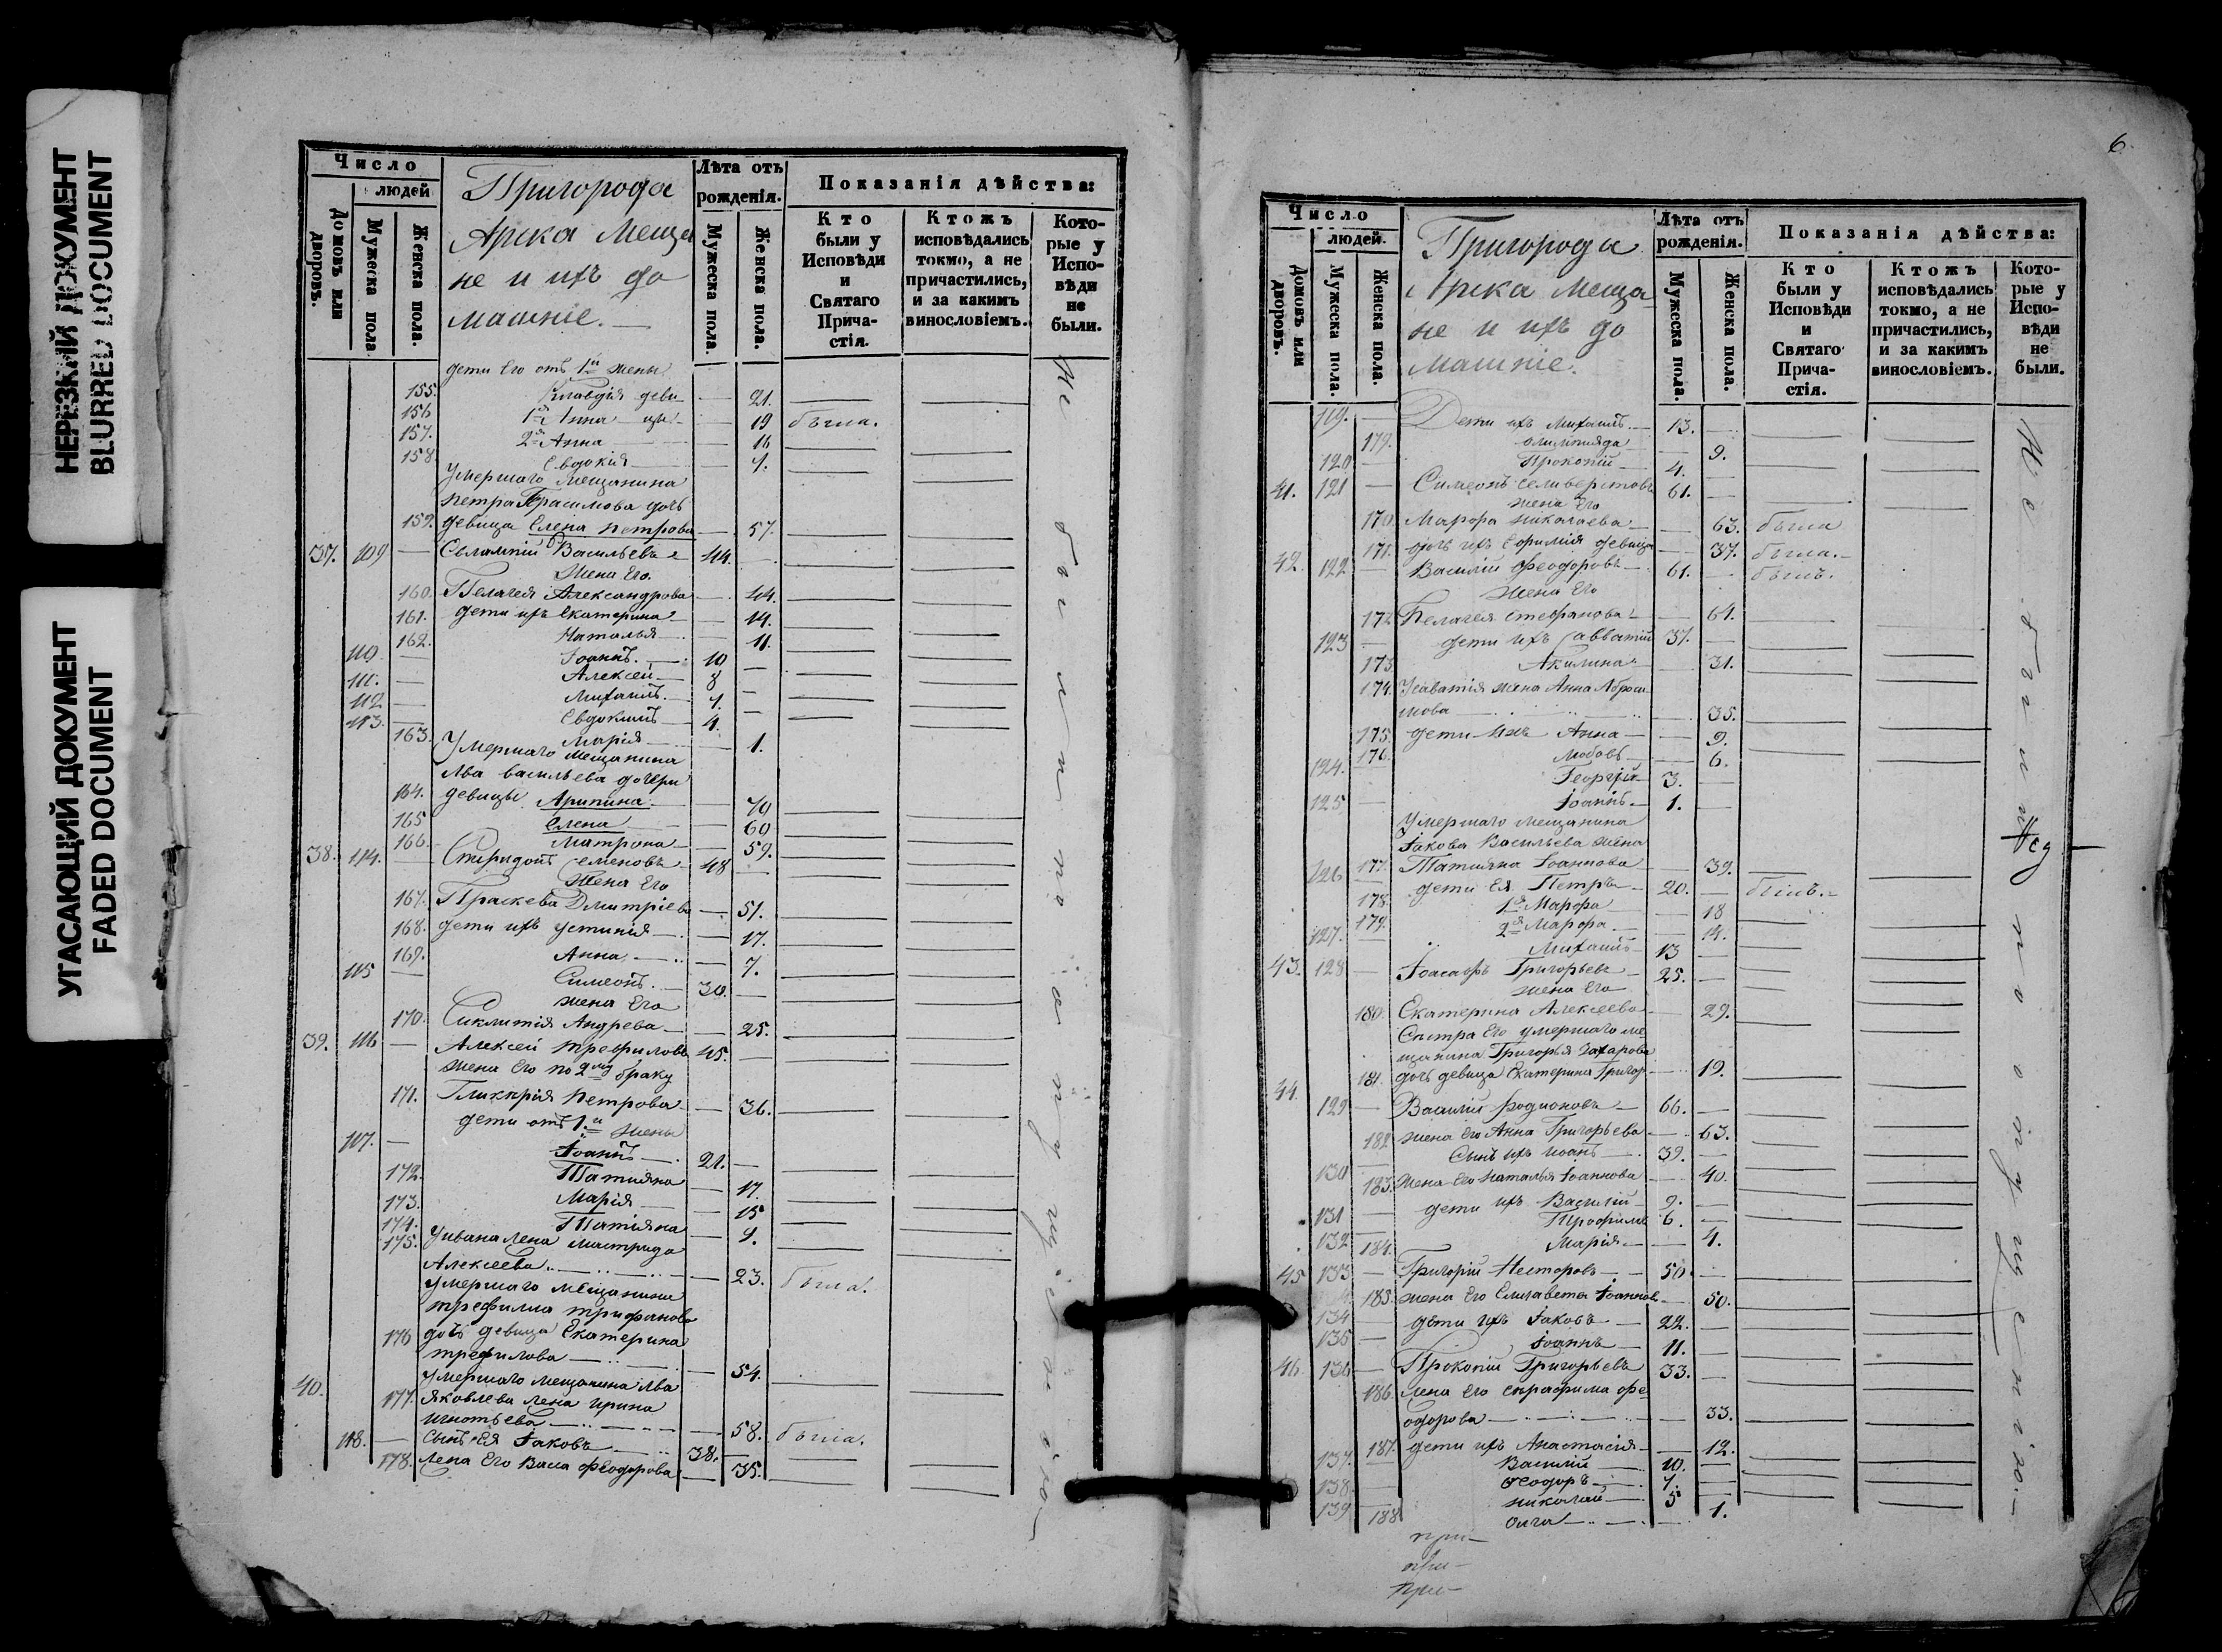 НЕРЕЗКИЙ ДОКУМЕНТ
BLURRED DOCUMENT
УГАСАЮЩИЙ ДОКУМЕНТ
FADED DOCUMENT
Число
людей
Домовъ или дворовъ.
Мужеска пола.
Женска пола.
Пригорода
Арска Меща
не и ихъ до
машніе.
Лѣта отъ
рожденія.
Мужеска пола.
Женска пола.
Показанія дѣйства:
Кто
были у
Исповѣди
и
Святаго
Прича-
стія.
Ктожъ
исповѣдались
токмо, а не
причастились,
и за какимъ
винословіемъ.
Кото-
рые у
Испо-
вѣди
не
были.
дети Его отъ 1й жены
155. Клавдія деви — 21.
156 1я Анна — 19 была.
157. 2я Анна — 16
158. Евдокія
умершаго мещанина
159. девица Елена петрова — 57.
37. 109 — Васильевъ 44. —
жена Его.
160. Пелагея Александрова — 44.
161. дети ихъ Екатерина — 14.
162. Наталья — 11.
110 — Іоаннъ. — 10 —
111. — Алексей — 8 —
112 — Михаилъ.
113. — Евдокимъ — 4. —
163. Марія — 1.
Умершаго мещанина
Льва васильева дочери
164. девицы — 70
165 Елена — 60
166. Матрона — 59.
38. 114. — Спиридонъ семеновъ 48 —
жена Его
167. Праскева Дмитріева — 51.
168. дети ихъ устинія — 17.
169. Анна — 7.
115 — Симеонъ. 30. —
жена Его
170. Сиклитія Андрева — 25.
39. 116 — Алексей трефиловъ 45. —
жена Его по 2му браку
171. Гликкрія петрова — 36.
дети отъ 1й жены
117. — Іоаннъ — 21. —
172. Татияна — 17.
173. Марія — 15
174. Татіяна
175. Уивана жена
Алексеева — 23. была.
умершаго мещанина
трефилиа трифанова
176 дочь девица Екатерина
трефилова — 54.
40. умершаго мещанина льва
177. яковлева жена ирина
игнотьева — 58. была.
118. — сынъ Ея Іаковъ 38. —
178. жена Его васса феодорова — 35.
6.
Число
людей.
Домовъ или дворовъ.
Мужеска пола.
Женска пола.
Пригорода
Арска меща
не и ихъ до
машніе.
Лѣта отъ
рожденія.
Мужеска пола.
Женска пола.
Показанія дѣйства:
Кто
были у
Исповѣди
и
Святаго
Прича-
стія.
Ктожъ
исповѣдались
токмо, а не
причастились,
и за какимъ
винословіемъ.
Кото-
рые у
Испо-
вѣди
не
были.
119. — Дети ихъ михаилъ. — 13. —
179. олимпияда — 9.
120 — Прокопій — 4. —
41. 121 — Симеонъ селиверстовъ 61. —
жена Его
170. Марфа николаева — 63. была
171. дочь ихъ Ефимія девица — 37. была.
42. 122 — Василій Феодоровъ — 61. — былъ.
жена Его
172. Пелагея стефанова — 61.
123 — дети ихъ савватій 37. —
173. Акилина — 31.
174. Усаватія жена Анна Аброси
мова — 35.
175. дети ихъ Анна — 9.
176. Любовь — 6.
124. — Георгій 3. —
125 — Іоаннъ — 1. —
Умершаго мещанина
Іакова Васильева жена
177. Татияна Іоаннова — 39.
126 — дети Ея Петръ — 20. — былъ.
178. 1я Марфа — 18
179. 2я Марфа — 14.
127. — Михаилъ — 13 —
43. 128 — Іоасафъ Григорьевъ — 25. —
жена Его
180. Екатерина Алексеева — 29.
Систра Его умершаго ме
щанина Григорья Захарова
181. дочь девица Екатерина Григор — 19.
44. 129 — Василій Родионовъ — 66. —
182. жена Его Анна Григорьева — 63.
130 — Сынъ ихъ иоанъ — 39. —
183. жена Его наталья Іоаннова — 40.
131 — дети ихъ Василій 9. —
132 — Трофимъ 6. —
184. Марія — 4.
45 133 — Григорій Несторовъ — 50. —
185. жена Его Елисавета Іоаннов — 50.
134 — дети ихъ Іаковъ — 22. —
135 — Іоаннъ — 11. —
46 136 — Прокопій Григорьевъ 33. —
186. жена Его серафима фе
одорова — 33.
187. дети ихъ Анастасія — 12.
137. — Василій 10. —
138. — Феодоръ 7. —
139 — николай — 5 —
188 олга — 1.
при—
при—
при—